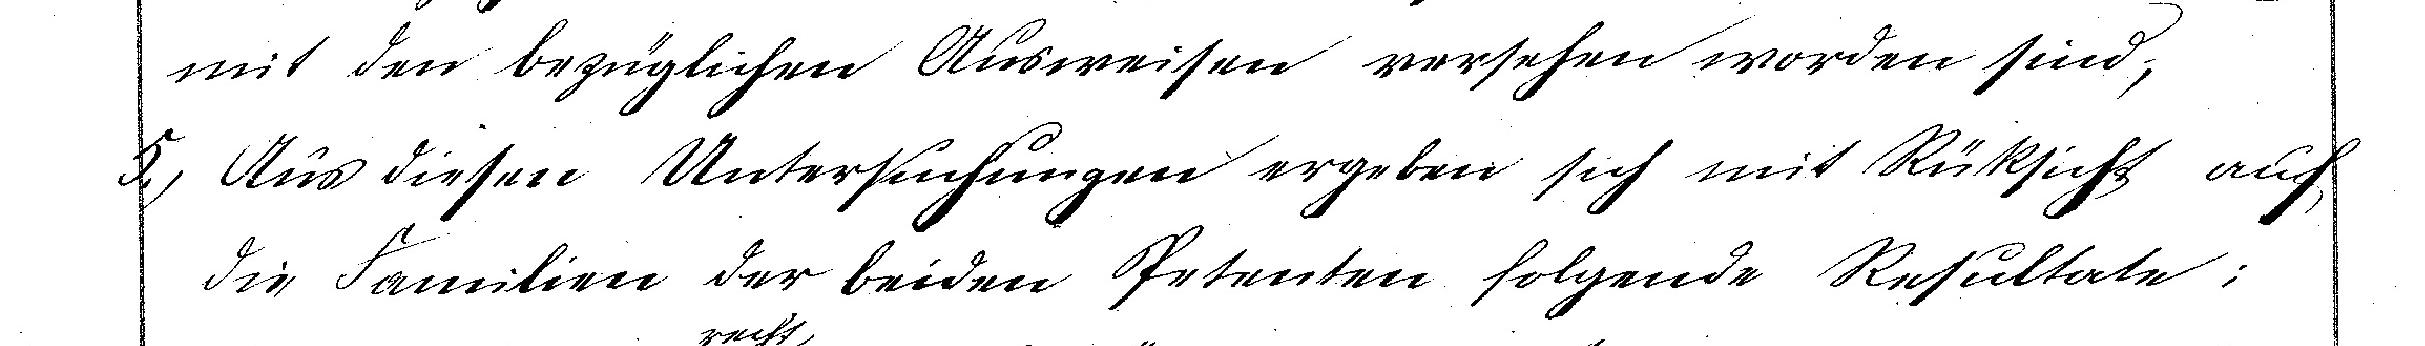 mit den bezüglichen Ausweisen versehen worden sind,
5., Aus diesen Untersuchungen ergeben sich mit Rüksicht auf
die Familien der beiden Petenten folgende Resultate:
recht,